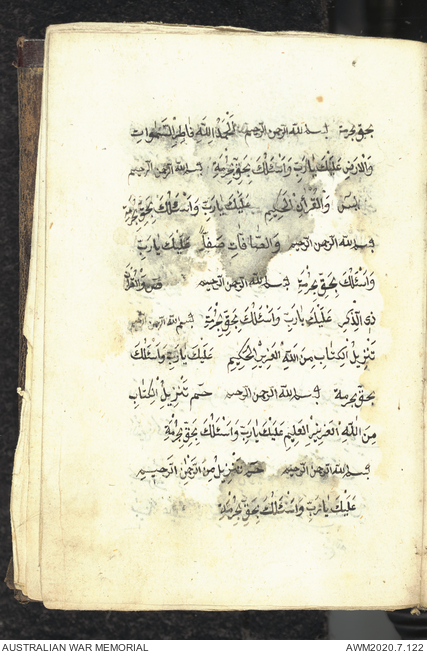 بحق بحرمة بسم الله الرحمن الرحيم الحمد لله فاطر السموات
والارض عليك يا رب واسئلك بحق بحرمة بسم الله الرحمن الرحيم
يس والقران الحكيم عليك يا رب واسئلك بحق بحرمة
بسم الله الرحمن الرحيم والصافات صفا عليك يا رب
واسئلك بحق بحرمة بسم الله الرحمن الرحيم ص والقران
ذى الذكر عليك يا رب واسئلك بحق بحرمة بسم الله الرحمن الرحيم
تنزيل الكتاب من الله العزيز الحكيم عليك يا رب واسئلك
بحق بحرمة بسم الله الرحمن الرحيم حم تنزيل الكتاب
من الله العزيز العليم عليك يا رب واسئلك بحق بحرمة
بسم الله الرحمن الرحيم حم تنزيل من الرحمن الرحيم
عليك يا رب واسئلك بحق بحرمة
AUSTRALIAN WAR MEMORIAL AWM2020.7.122